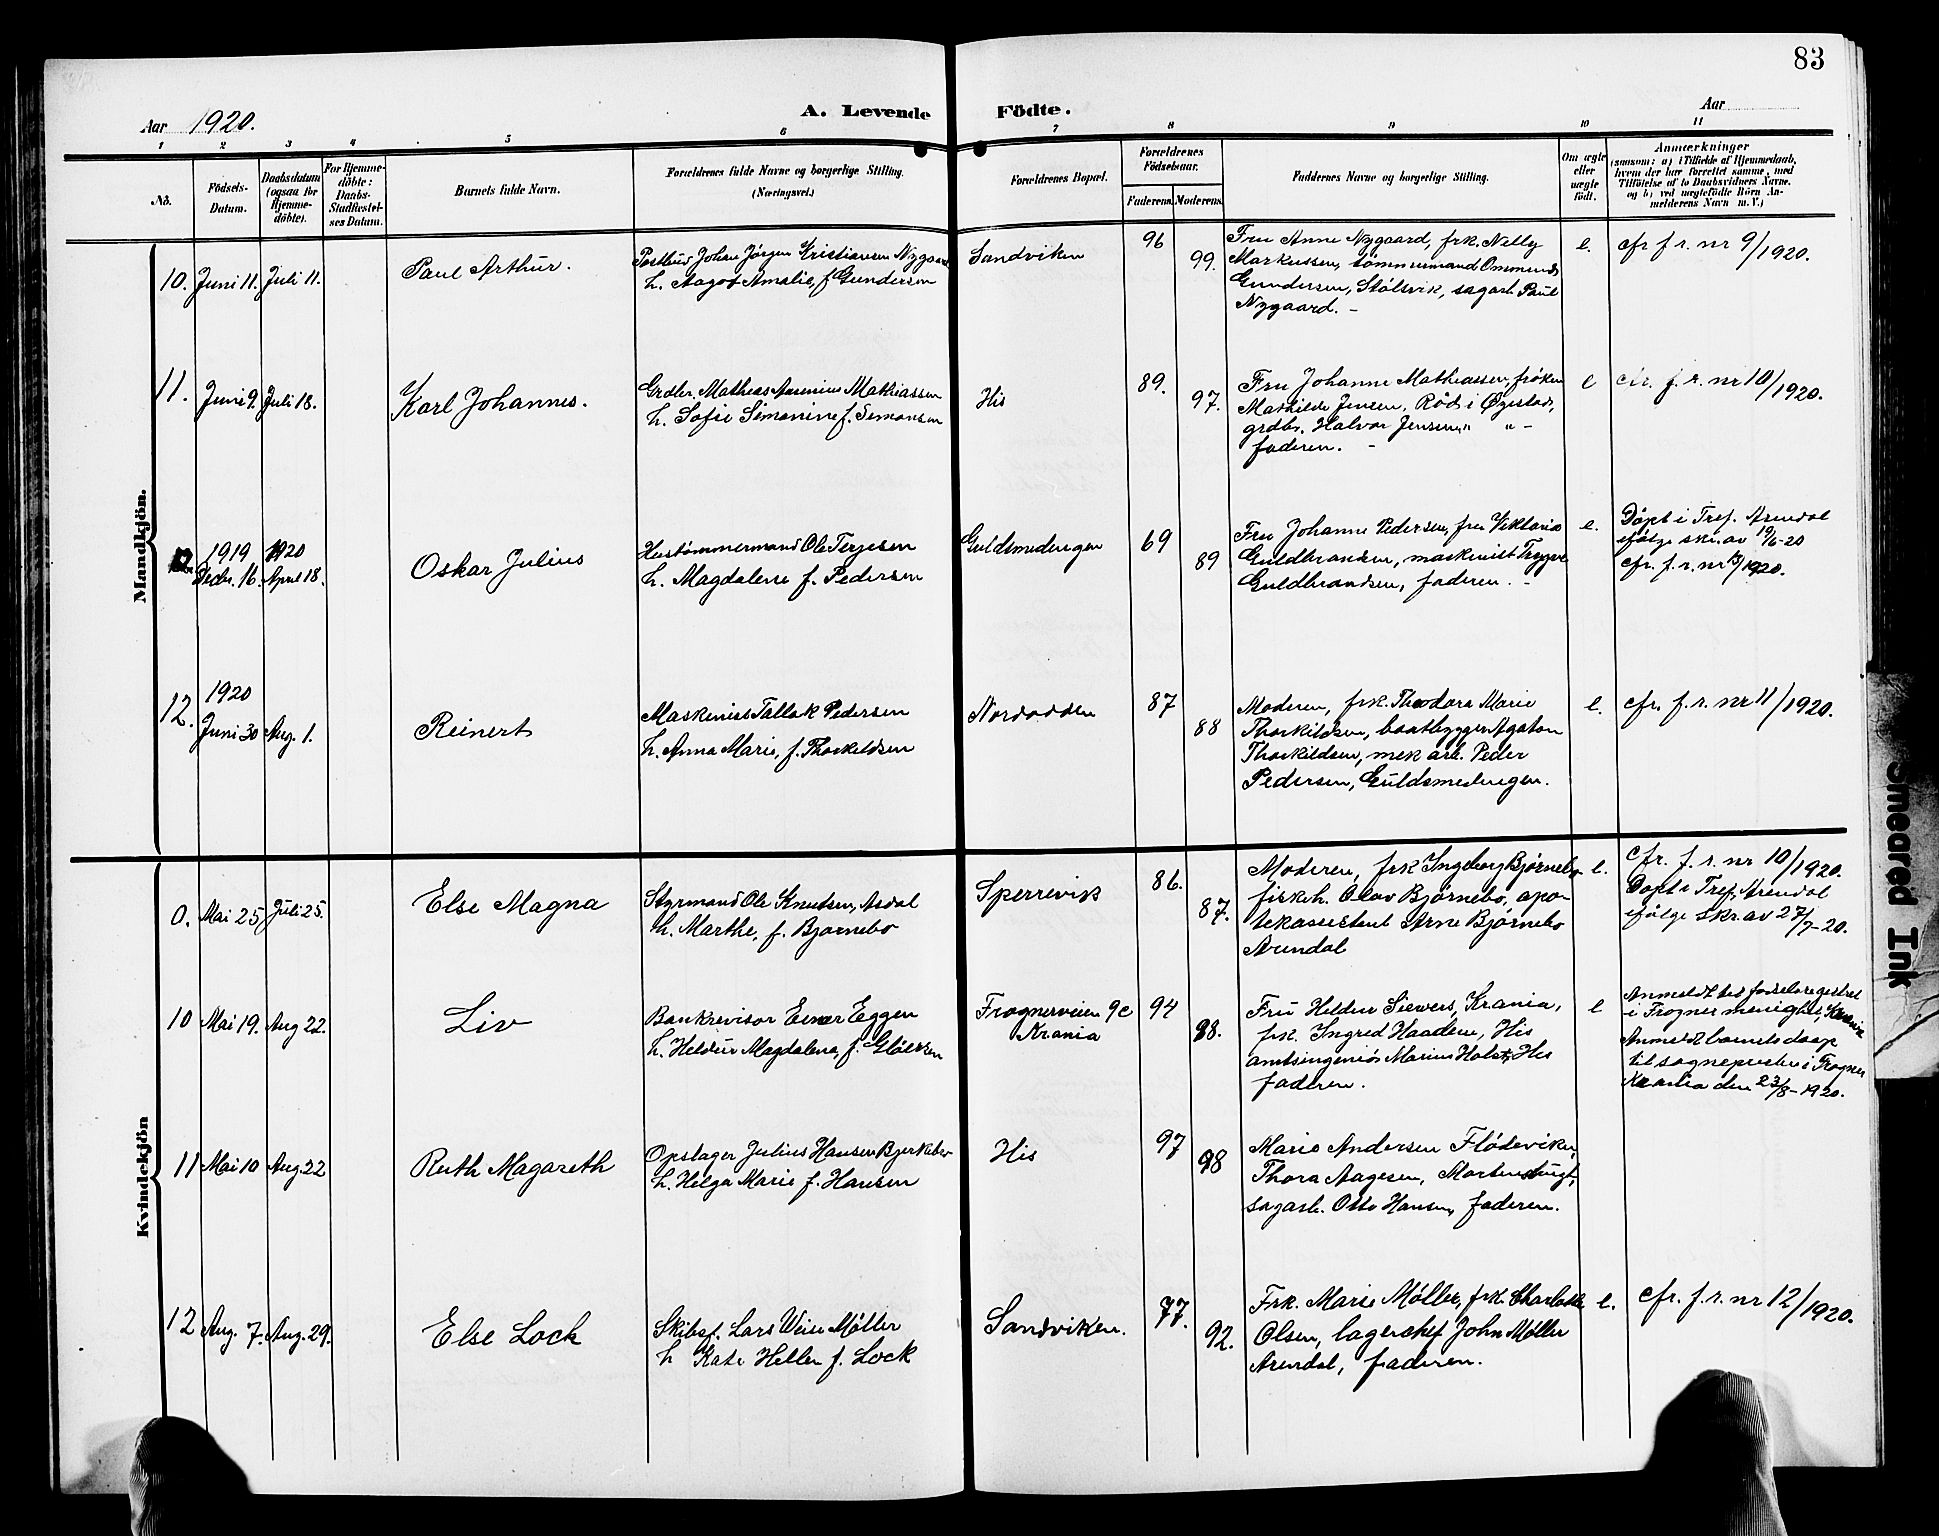 83
Aar 1920.
A. Levende Födte.
Aar
1 2 3 4 5 6 7 8 9 10 11
No.
Födsels-
Datum.
Daabsdatum
(ogsaa for
Hjemme-
döbte).
For Hjemme-
döbte:
Daabs-
Stadfæstel-
ses Datum.
Barnets fulde Navn.
Forældrenes fulde Navne og borgerlige Stilling.
(Næringsvei.)
Forældrenes Bopæl.
Forældrenes
Födselsaar.
Faderens.
Moderens.
Faddernes Navne og borgerlige Stilling.
Om ægte
eller
uægte
födt.
Anmærkninger
(saasom: a) i Tilfælde af Hjemmedaab,
hvem der har forrettet samme, med
Tilföielse af to Daabsvidners Navne.
og b) ved uægtefödte Börn An-
melderens Navn m. V.)
Mandkjön.
10. Juni 11. Juli 11.
Paul Arthur.
Postbud Johan Jörgen Kristiansen Nygaard
h. Aagot Amalie, f Gundersen
Sandviken
96
99.
Fru Anne Nygaard, frk. Nelly
Markussen, tømmermand Ommund
Gundersen, Stölsvik, sagarb Paul
Nygaard. -
e.
cfr f. r. nr 9/1920.
11. Juni 9. Juli 18.
Karl Johannes.
Grdbr. Mathias Mathiassen
h. Sofie Simonine f. Simonsen
His
89.
97.
Fru Johanne Mathiassen, fröken
Mathilde Jensen, Röd i Øyestad,
grdbr. Halvor Jensen, " " -
faderen. -
e
cfr. f. r. nr 10/1920.
1919 1920
Decbr. 16. April 18.
Oskar Julius
Hustømmermand Ole Terjesen
h. Magdalene f. Pedersen
Guldsmedengen
69
89
Fru Johanne Pedersen, fru Viktoria
Guldbrandsen, maskinist Trygve
Guldbrandsen, faderen. -
e.
Döpt i Tref. Arendal
ifölge skr. av 10/6-20
cfr. f. r. nr /1920.
12. 1920
Juni 30 Aug. 1.
Reinert
Maskinist Tallak Pedersen
h. Anna Marie, f. Thorkildsen
Nordodden
87
88
Moderen, frk. Theodora Marie
Thorkildsen, baatbygger Agaton
Thorkildsen, mek arb. Peder
Pedersen, Guldsmedengen.
e.
cfr. f. r. nr 11/1920.
Kvindekjön
0. Mai 25 Juli 25.
Else Magna
Styrmand Ole Knutsen, Asdal
h. Marthe, f. Bjørnebo
Sperrevik
86.
87.
Moderen, frk Ingeborg Bjørnebo
firskh. Olav Bjørnebo, apo-
tekassistent Arne Bjørnebo
Arendal
e.
Cfr. f. r. nr 10/1920.
Döpt i Tref, Arendal
ifölge skr. av 27/7-20.
10 Mai 19. Aug 22.
Liv
Bankrevisor Einar Eggen
h. Heldur Magdalena, f.
Frognerveien 9c
Krania
94
98.
Fru Heldur Siewers, Krania,
frk. Ingrid Haaden, His
amtsingeniør Marius Holst, His
faderen.
e
Anmeldt ved fødselsregistret
i Frogner menighet, Krania
Anmeldt barnets daap
til sognepresten i Frogner
Krania den 23/8-1920.
11 Mai 10 Aug. 22
Ruth Magareth
Opslager Julius Hansen
h. Helga Marie f. Hansen
His
97
98
Marie Andersen Flödeviken,
Thora Aagesen,
sagarb. Otto Hansen, faderen.
12 Aug. 7. Aug. 29.
Else Lock
Skibsf. Lars Weise Möller
h Kate Hellen f. Lock
Sandviken.
77.
92.
Frk. Marie Møller, frk. Charlotte
Olsen, lagerchef John Møller
Arendal, faderen.
e.
cfr. f. r. nr 12/1920.
Smeared Ink